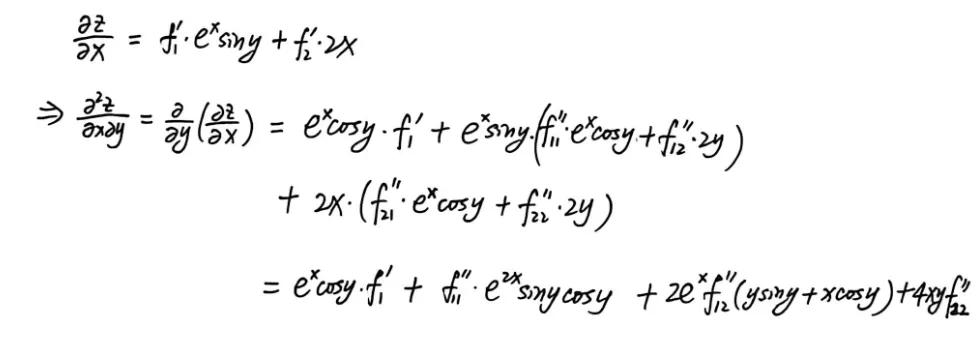 ∂z/∂x = f₁′·eˣsiny + f₂′·2x
⇒ ∂²z/∂x∂y = ∂/∂y(∂z/∂x) = eˣcosy·f₁′ + eˣsiny·(f₁₁″·eˣcosy + f₁₂″·2y)
+ 2x·(f₂₁″·eˣcosy + f₂₂″·2y)
= eˣcosy·f₁′ + f₁₁″·e²ˣsinycosy + 2eˣf₁₂″(ysiny + xcosy) + 4xyf₂₂″